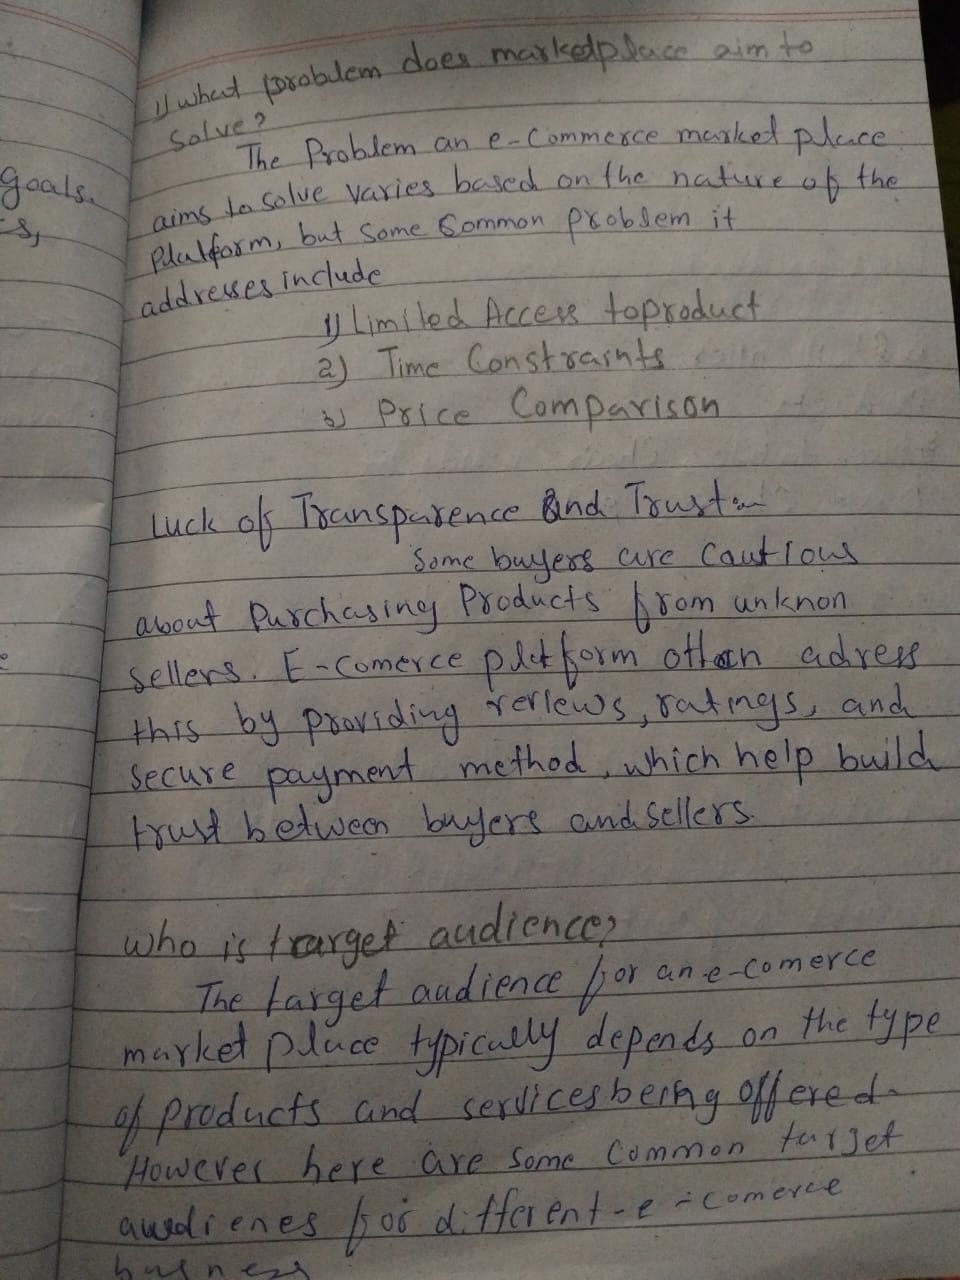 goals.
s,
1) what problem does marketplace aim to
solve?
The Problem an e-Commerce market place
aims to solve varies based on the nature of the
Platform, but some common problem it
addresses include
1) Limited Access to product
2) Time Constraints
3) Price Comparison
Luck of Transparence And Trust
Some buyers are cautious
about Purchasing Products from unknon
sellers. E-comerce platform adress
this by providing reviews, ratings, and
secure payment method, which help build
trust between buyers and sellers.
who is target audience?
The target audience for an e-comerce
market place typically depends on the type
of products and services being offered.
However here are some common target
audienes for different-e-comerce
busness